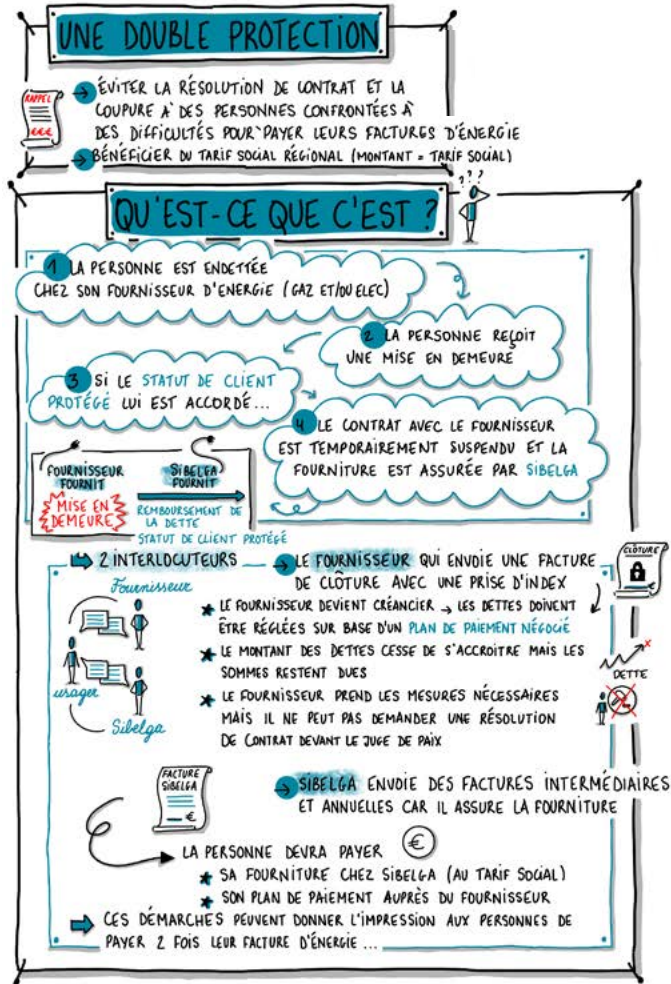 UNE DOUBLE PROTECTION
RAPPEL
€€€
→ ÉVITER LA RÉSOLUTION DE CONTRAT ET LA
COUPURE À DES PERSONNES CONFRONTÉES À
DES DIFFICULTÉS POUR PAYER LEURS FACTURES D'ÉNERGIE
→ BÉNÉFICIER DU TARIF SOCIAL RÉGIONAL (MONTANT = TARIF SOCIAL)
QU'EST-CE QUE C'EST ?
???
1 LA PERSONNE EST ENDETTÉE
CHEZ SON FOURNISSEUR D'ENERGIE (GAZ ET/OU ELEC)
2 LA PERSONNE REÇOIT
UNE MISE EN DEMEURE
3 SI LE STATUT DE CLIENT
PROTÉGÉ LUI EST ACCORDÉ...
4 LE CONTRAT AVEC LE FOURNISSEUR
EST TEMPORAIREMENT SUSPENDU ET LA
FOURNITURE EST ASSURÉE PAR SIBELGA
FOURNISSEUR
FOURNIT
MISE EN
DEMEURE
SIBELGA
FOURNIT
REMBOURSEMENT DE
LA DETTE
STATUT DE CLIENT PROTÉGÉ
➡ 2 INTERLOCUTEURS
Fournisseur
usager
Sibelga
→ LE FOURNISSEUR QUI ENVOIE UNE FACTURE
DE CLÔTURE AVEC UNE PRISE D'INDEX
CLÔTURE
€
★ LE FOURNISSEUR DEVIENT CRÉANCIER → LES DETTES DOIVENT
ÊTRE RÉGLÉES SUR BASE D'UN PLAN DE PAIEMENT NÉGOCIÉ
★ LE MONTANT DES DETTES CESSE DE S'ACCROITRE MAIS LES
SOMMES RESTENT DUES
DETTE
★ LE FOURNISSEUR PREND LES MESURES NÉCESSAIRES
MAIS IL NE PEUT PAS DEMANDER UNE RÉSOLUTION
DE CONTRAT DEVANT LE JUGE DE PAIX
FACTURE
SIBELGA
€
→ SIBELGA ENVOIE DES FACTURES INTERMÉDIAIRES
ET ANNUELLES CAR IL ASSURE LA FOURNITURE
LA PERSONNE DEVRA PAYER €
★ SA FOURNITURE CHEZ SIBELGA (AU TARIF SOCIAL)
★ SON PLAN DE PAIEMENT AUPRÈS DU FOURNISSEUR
➡ CES DÉMARCHES PEUVENT DONNER L'IMPRESSION AUX PERSONNES DE
PAYER 2 FOIS LEUR FACTURE D'ÉNERGIE ...